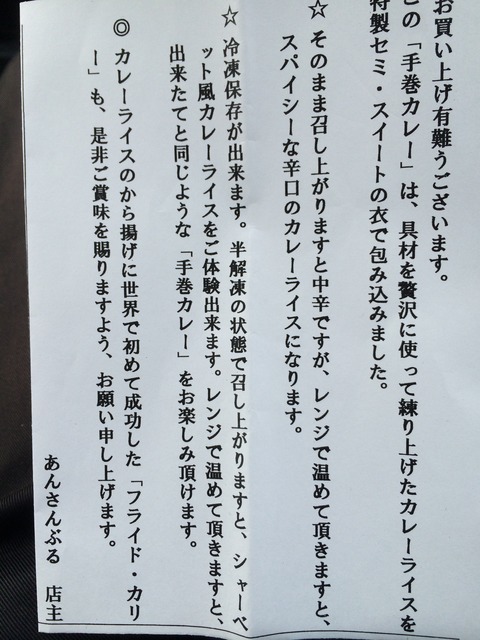 お買い上げ有難うございます。
この「手巻カレー」は、具材を贅沢に使って練り上げたカレーライスを
特製セミ・スイートの衣で包み込みました。
☆ そのまま召し上がりますと中辛ですが、レンジで温めて頂きますと、
スパイシーな辛口のカレーライスになります。
☆ 冷凍保存が出来ます。半解凍の状態で召し上がりますと、シャーベ
ット風カレーライスをご体験出来ます。レンジで温めて頂きますと、
出来たてと同じような「手巻カレー」をお楽しみ頂けます。
◎ カレーライスのから揚げに世界で初めて成功した「フライド・カリ
ー」も、是非ご賞味を賜りますよう、お願い申し上げます。
あんさんぶる 店主